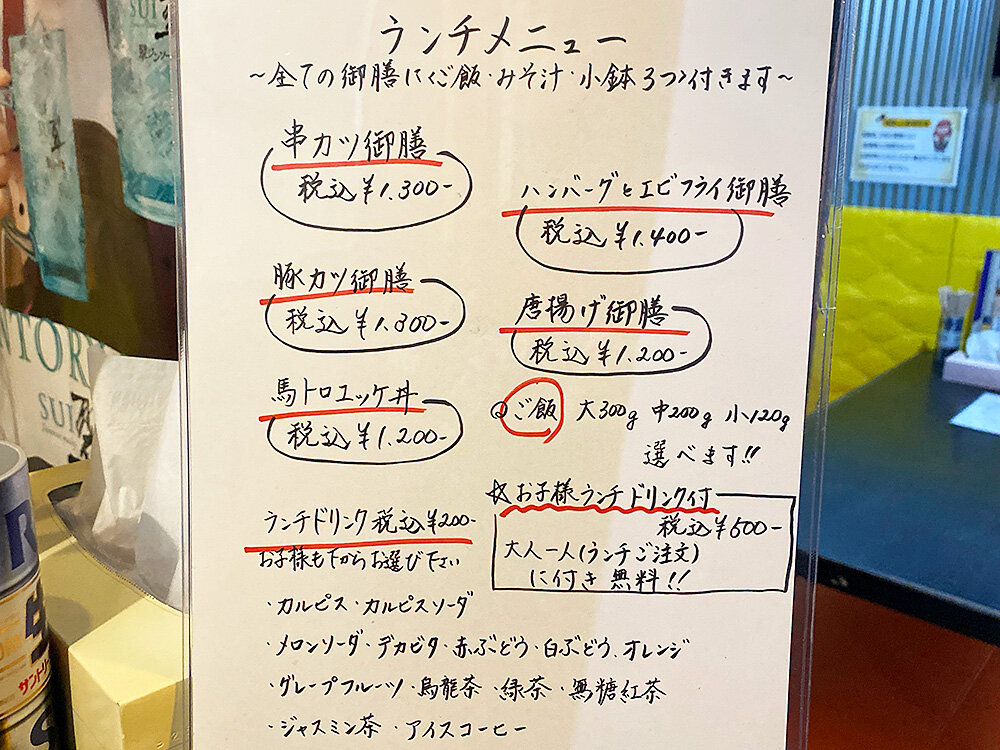 ランチメニュー
~全ての御膳にご飯・みそ汁・小鉢3つ付きます~
串カツ御膳
税込¥1.300-
豚カツ御膳
税込¥1.300-
馬トロユッケ丼
税込¥1.200-
ハンバーグとエビフライ御膳
税込¥1.400-
唐揚げ御膳
税込¥1.200-
○ご飯 大300g 中200g 小120g
選べます!!
☆お子様ランチドリンク付
税込¥500-
大人一人(ランチご注文)
に付き無料!!
ランチドリンク税込¥200-
お子様も下からお選び下さい
・カルピス・カルピスソーダ
・メロンソーダ・デカビタ・赤ぶどう・白ぶどう・オレンジ
・グレープフルーツ・烏龍茶・緑茶・無糖紅茶
・ジャスミン茶・アイスコーヒー
SUI
NTORY
SUI
サントリー